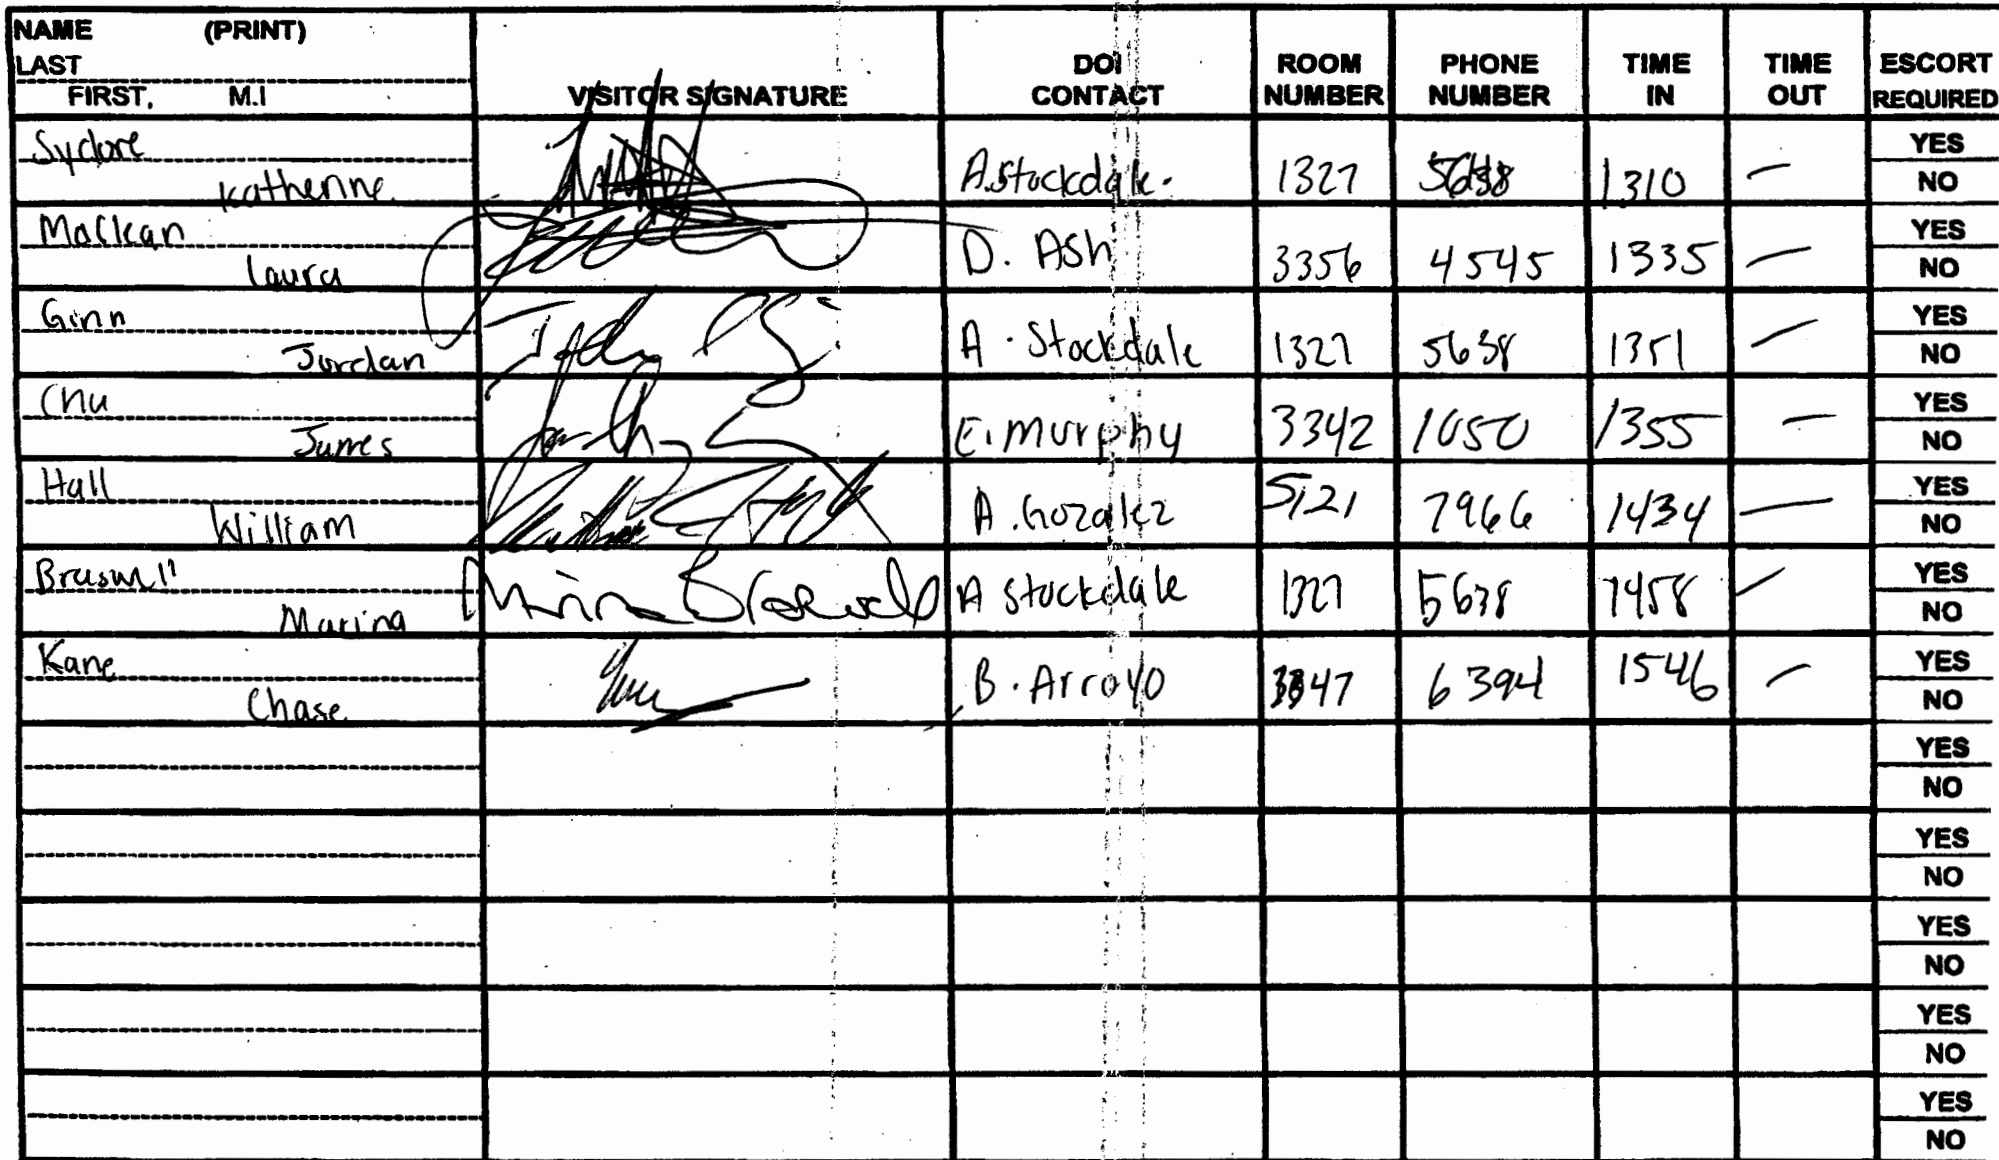 NAME (PRINT)
LAST
FIRST, M.I
VISITOR SIGNATURE
DOI CONTACT
ROOM NUMBER
PHONE NUMBER
TIME IN
TIME OUT
ESCORT REQUIRED
Sydore
Katherine
A.Stockdale.
1327
5638
1310
—
YES
NO
Laura
D. ASh
3356
4545
1335
—
YES
NO
Ginn
Jordan
A. Stockdale
1327
5638
1351
—
YES
NO
Chu
James
E. Murphy
3342
1050
1355
—
YES
NO
Hall
William
A. Gozalez
5121
7966
1434
—
YES
NO
Marina
A Stockdale
1327
5638
1458
—
YES
NO
Kane
Chase
B. Arroyo
3347
6394
1546
—
YES
NO
YES
NO
YES
NO
YES
NO
YES
NO
YES
NO